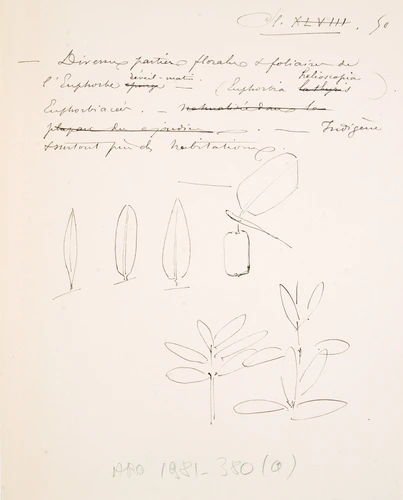 Pl. XLVIII. 50
— Diverses parties florales & foliaires de
l'Euphorbe épurge réveil-matin. — (Euphorbia lathyris helioscopia)
Euphorbiacées. — Naturalisée dans la
plupart des jardins. — Indigène
& surtout près des habitations.
ARO 1981-380 (0)